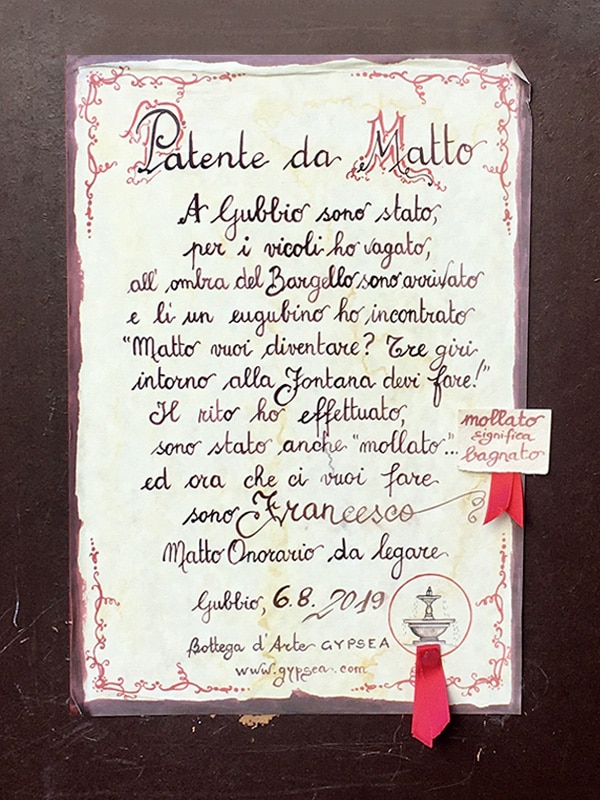 Patente da Matto
A Gubbio sono stato,
per i vicoli ho vagato,
all' ombra del Bargello sono arrivato
e lì un eugubino ho incontrato
"Matto vuoi diventare? Tre giri
intorno alla Fontana devi fare!"
Il rito ho effettuato,
sono stato anche "mollato"...
ed ora che ci vuoi fare
sono Francesco
Matto Onorario da legare
mollato
significa
bagnato
Gubbio, 6.8.2019
Bottega d'Arte GYPSEA
www.gypsea.com